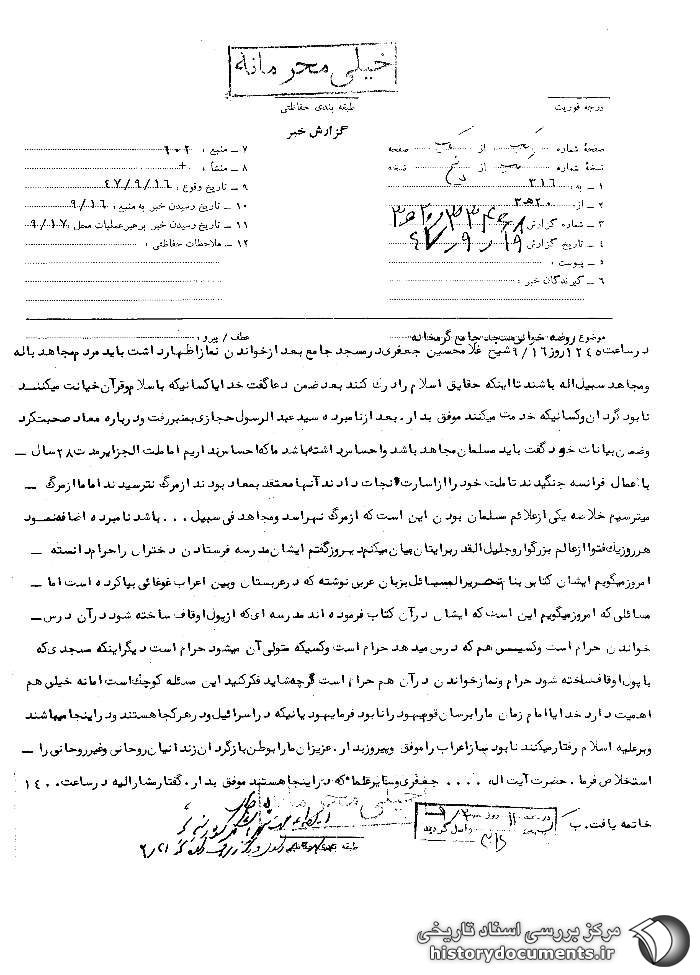 خیلی محرمانه
طبقه بندی حفاظتی
درجه فوریت
گزارش خبر
صفحهٔ شماره از صفحه
نسخهٔ شماره از نسخه
۱ ـ به : ۳۱۶
۲ ـ از: ۲۰ ﻫ ۳
۳ ـ شماره گزارش
۴ ـ تاریخ گزارش ۴۷/۹/۱۹
۵ ـ پیوست :
۶ ـ گیرندگان خبر :
۷ ـ منبع : ۶۰۲
۸ ـ منشأ : +
۹ ـ تاریخ وقوع : ۴۷/۹/۱۶
۱۰ ـ تاریخ رسیدن خبر به منبع : ۹/۱۶
۱۱ ـ تاریخ رسیدن خبر برهبرعملیات محل : ۹/۱۷
۱۲ ـ ملاحظات حفاظتی :
موضوع روضه خوانی مسجد جامع گرمخانه
عطف / پیرو :
در ساعت ۱۲۴۵ روز ۹/۱۶ شیخ غلامحسین جعفری در مسجد جامع بعد از خواندن نماز اظهار داشت باید مردم مجاهد باله
و مجاهد سبیل اله باشند تا اینکه حقایق اسلام را درک کنند بعد ضمن دعا گفت خدایا کسانیکه باسلام و قرآن خیانت میکنند
نابود گردان و کسانیکه خدمت میکنند موفق بدار . بعد از نامبرده سید عبدالرسول حجازی بمنبر رفت و درباره معاد صحبت کرد
و ضمن بیانات خود گفت باید مسلمان مجاهد باشد و احساس داشته باشد ما که احساس نداریم اما ملت الجزایر مدت ۲۸ سال ـ
با عمال فرانسه جنگیدند تا ملت خود را از اسارت نجات دادند آنها معتقد بمعاد بودند از مرگ نترسیدند اما ما از مرگ ـ
میترسیم خلاصه یکی از علائم مسلمان بودن این است که از مرگ نهراسد و مجاهد فی سبیل . . . باشد نامبرده اضافه نمود
هر روز یک فتوا از عالم بزرگوار و جلیل القدر برایتان بیان میکنم دیروز گفتم ایشان مدرسه فرستادن دختران را حرام دانسته ـ
امروز میگویم ایشان کتابی بنام تحریر المسائل بزبان عربی نوشته که در عربستان و بین اعراب غوغائی بپا کرده است اما ـ
مسائلی که امروز میگویم این است که ایشان در آن کتاب فرموده اند مدرسه ای که از پول اوقاف ساخته شود در آن درس ـ
خواندن حرام است و کسیس هم که درس میدهد حرام است و کسیکه متولی آن میشود حرام است دیگر اینکه مسجدی که
با پول اوقاف ساخته شود حرام و نماز خواندن در آن هم حرام است گرچه شاید فکر کنید این مسئله کوچک است اما نه خیلی هم
اهمیت دارد خدایا امام زمان ما را برسان قوم یهود را نابود فرما یهودیانیکه در اسرائیل و در هر کجا هستند و در اینجا میباشند
و بر علیه اسلام رفتار میکنند نابود ساز اعراب را موفق و پیروز بدار . عزیزان ما را بوطن باز گردان زندانیان روحانی و غیر روحانی را ـ
استخلاص فرما . حضرت آیت اله . . . . جعفری و سایر علما که در اینجا هستند موفق بدار . گفتار مشارالیه در ساعت ۱۴۰۰
خاتمه یافت . ب
خیلی محرمانه
مرکز بررسی اسناد تاریخی
historydocuments.ir